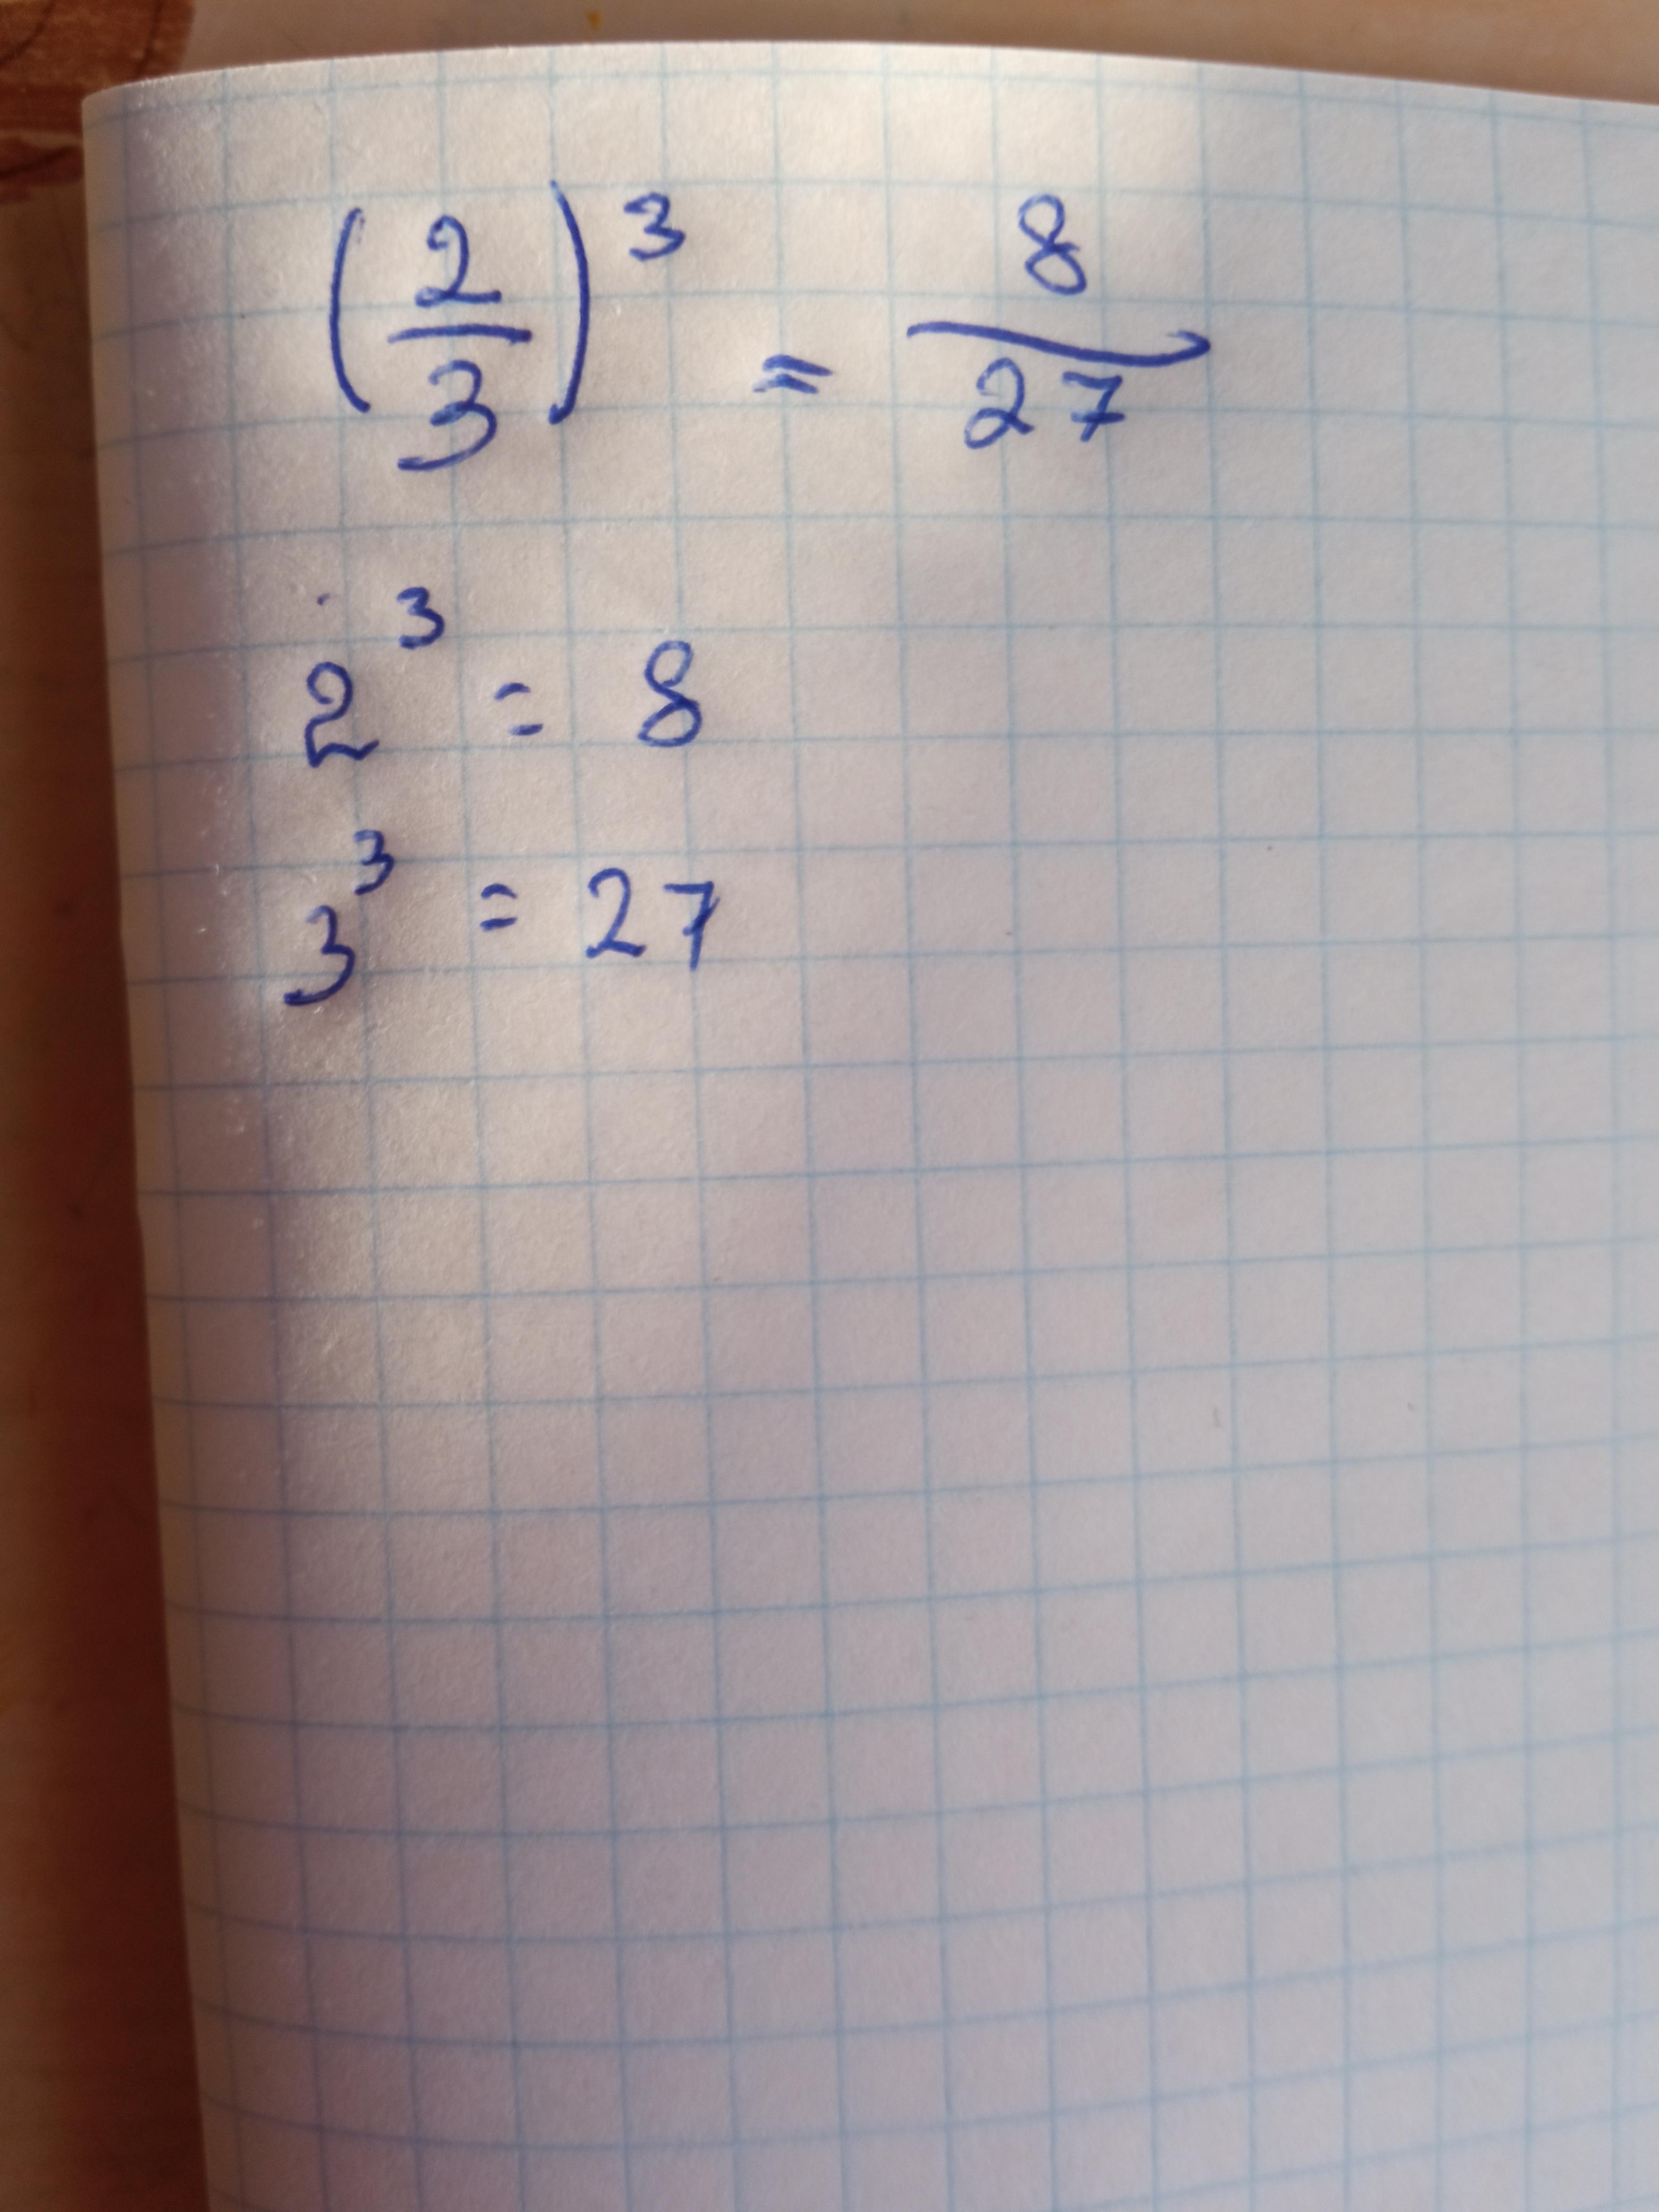 (2/3)³ = 8/27
2³ = 8
3³ = 27